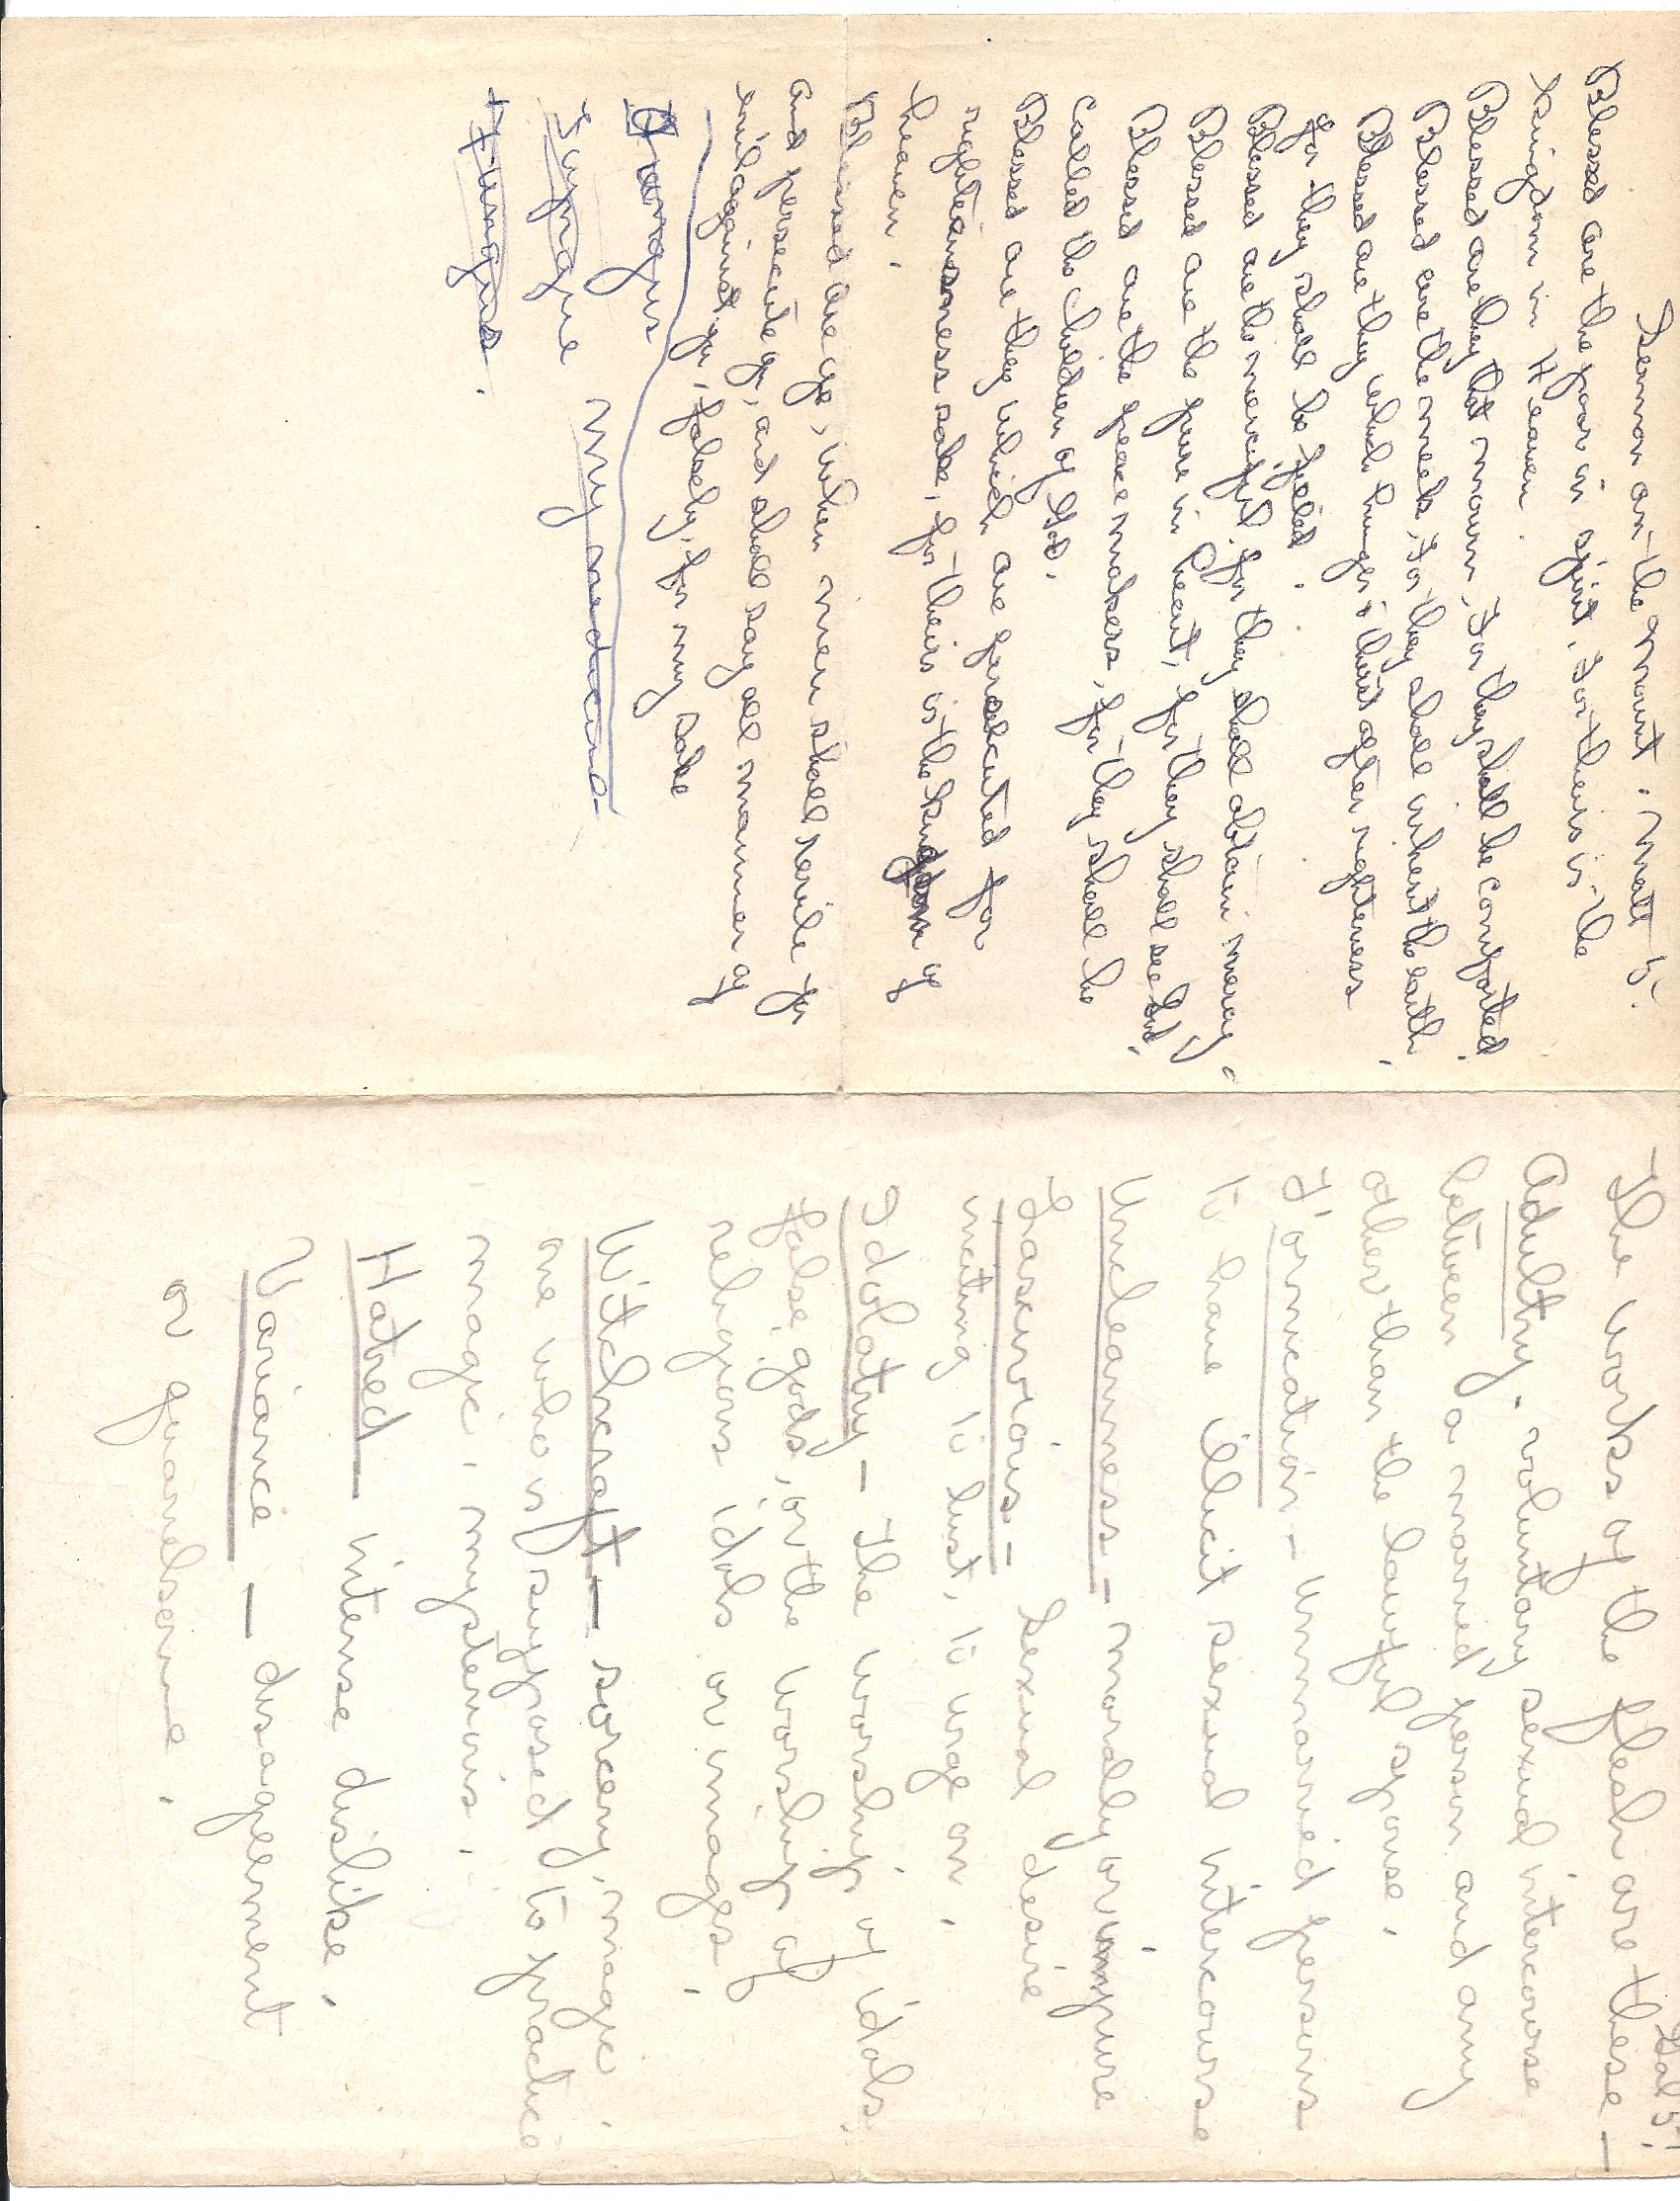 Sermon on the mount. Matt 5.
Blessed are the poor in spirit, For theirs is the
Kingdom in Heaven.
Blessed are they that mourn, For they shall be comforted.
Blessed are the meek, For they shall inherit the earth.
Blessed are they which hunger & thirst after righteness
for they shall be filled.
Blessed are the merciful, for they shall obtain mercy.
Blessed are the pure in heart, for they shall see God.
Blessed are the peace makers, for they shall be
called the children of God.
Blessed are they which are persecuted for
righteousness sake, for theirs is the kingdom of
heaven.
Blessed are ye, when men shall revile ye
and persecute ye, and shall say all manner of
evil against ye, falsely, for my sake
Fungus
Fungue my medicine
Fungus.
Gal 5:
The works of the flesh are these –
Adultry - voluntary sexual intercourse
between a married person and any
other than the lawful spouse.
Fornication - unmarried persons
to have illicit sexual intercourse
Uncleanness - morally or impure
Lascivious - Sexual desire
inciting to lust, to urge on.
Idolatry - The worship of idols.
false gods, or the worship of
religous idols or images.
Witchcraft - sorcery, magic.
one who is supposed to practice
magic, mysterious.
Hatred - intense dislike.
Variance - disagreement
or quarelsome.